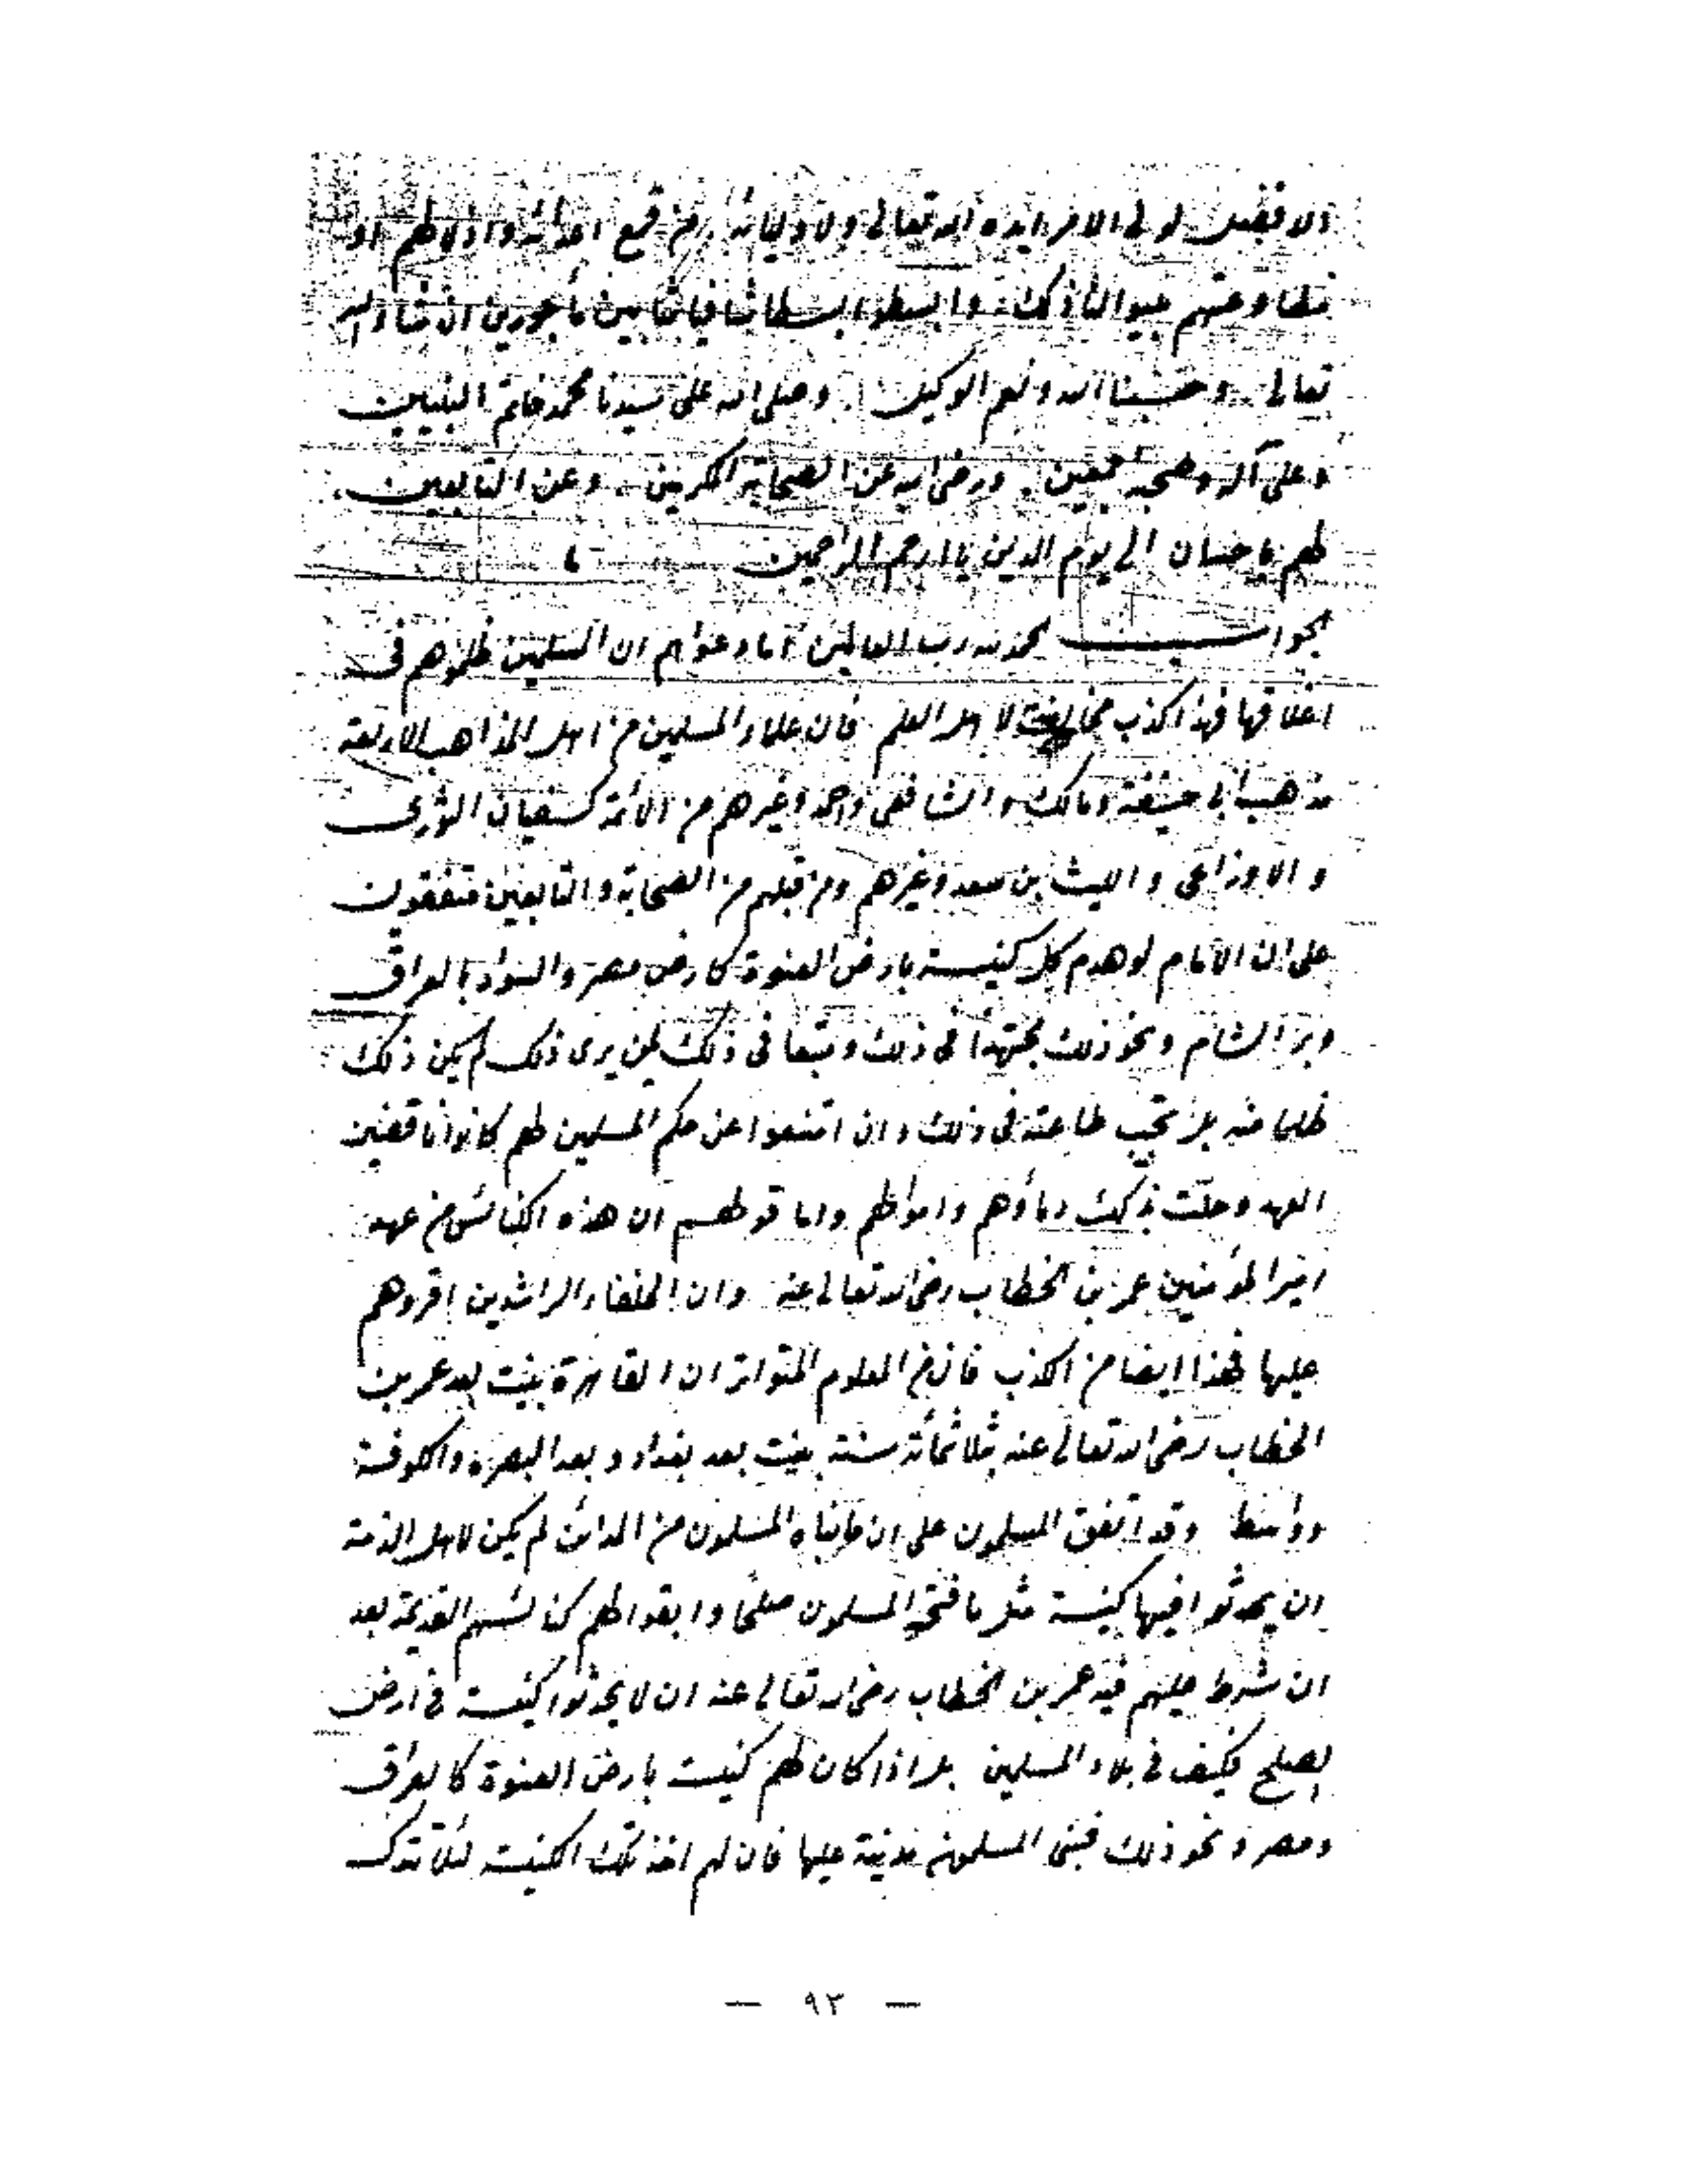 الافضل لولى الامر ايده الله تعالى ولاوليائه من قمع اعدائه واذلالهم او
مطاوعتهم بينوا لنا ذلك وابسطوا بسطا شافيا مثابين مأجورين ان شاء الله
تعالى وحسبنا الله ونعم الوكيل وصلى الله على سيدنا محمد خاتم النبيين
وعلى آله وصحبه اجمعين ورضى الله عن الصحابة المكرمين وعن التابعين
لهم باحسان الى يوم الدين يا ارحم الراحمين
الجواب الحمد لله رب العالمين اما دعواهم ان المسلمين ظلموهم فى
اغلاقها فهذا كذب مخالف لاهل العلم فان علماء المسلمين من اهل المذاهب الاربعة
مذهب ابى حنيفة ومالك والشافعى واحمد وغيرهم من الائمة كسفيان الثورى
والاوزاعى والليث بن سعد وغيرهم ومن قبلهم من الصحابة والتابعين متفقون
على ان الامام لو هدم كل كنيسة بارض العنوة كارض مصر والسواد بالعراق
وبر الشام ونحو ذلك مجتهدا فى ذلك ومتبعا فى ذلك لمن يرى ذلك لم يكن ذلك
ظلما منه بل تجب طاعته فى ذلك وان امتنعوا عن حكم المسلمين لهم كانوا ناقضين
العهد وحلت بذلك دماؤهم واموالهم واما قولهم ان هذه الكنائس من عهد
امير المؤمنين عمر بن الخطاب رضى الله تعالى عنه وان الخلفاء الراشدين اقروهم
عليها فهذا ايضا من الكذب فان من المعلوم المتواتر ان القاهرة بنيت بعد عمر بن
الخطاب رضى الله تعالى عنه بثلاثمائة سنة بنيت بعد بغداد وبعد البصرة والكوفة
وواسط وقد اتفق المسلمون على ان ما بناه المسلمون من المدائن لم يكن لاهل الذمة
ان يحدثوا فيها كنيسة مثل ما فتحه المسلمون صلحا وابقوا لهم كنائسهم القديمة بعد
ان شرط عليهم فيه عمر بن الخطاب رضى الله تعالى عنه ان لا يحدثوا كنيسة فى ارض
الصلح فكيف فى بلاد المسلمين بل اذا كان لهم كنيسة بارض العنوة كالعراق
ومصر ونحو ذلك فبنى المسلمون مدينة عليها فان لهم اخذ تلك الكنيسة لئلا تترك
— ٩٣ —